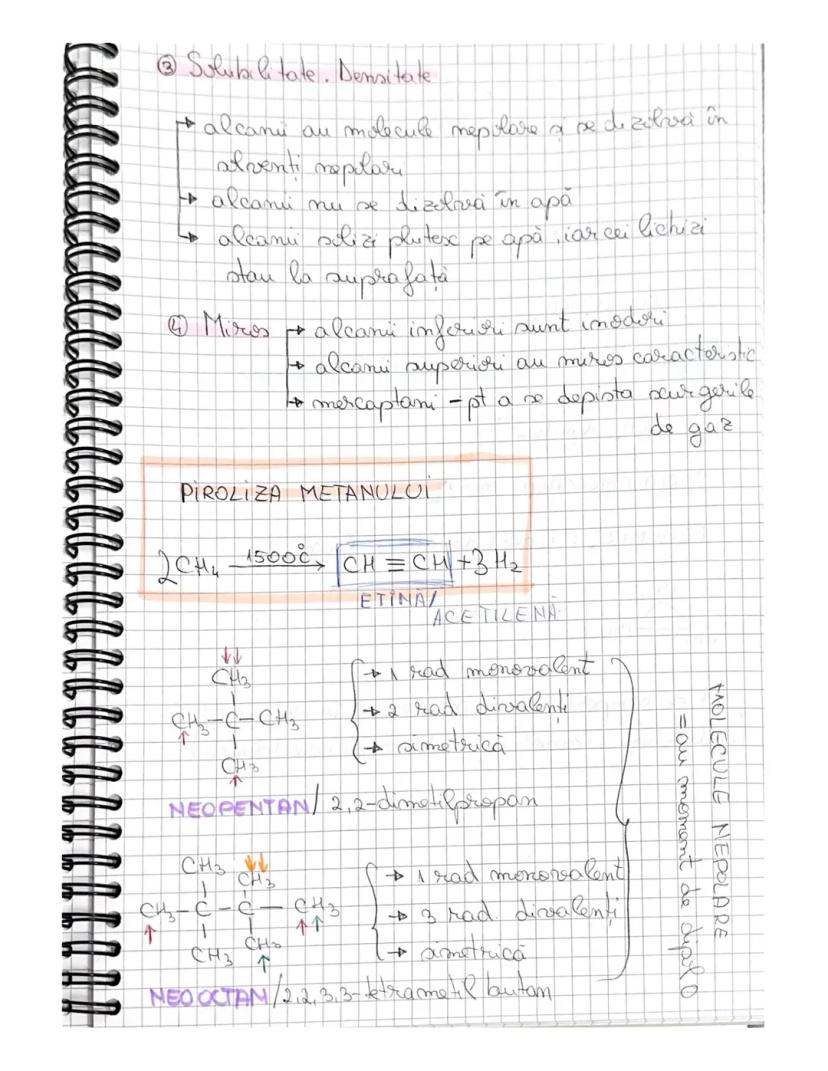 ③ Solubilitate. Densitate
→ alcanii au molecule nepolare și se dizolvă în
solvenți nepolari
→ alcanii nu se dizolvă în apă
→ alcanii solizi plutesc pe apă, iar cei lichizi
stau la suprafață
④ Miros → alcanii inferiori sunt inodori
→ alcanii superiori au miros caracteristic
→ mercaptani - pt a se depista scurgerile
de gaz
PIROLIZA METANULUI
2CH₄ —1500°C→ CH ≡ CH + 3H₂
ETINĂ/
ACETILENĂ
CH₃
CH₃-C-CH₃
CH₃
→ 1 rad monovalent
→ 2 rad divalenți
→ simetrică
NEOPENTAN/ 2,2-dimetilpropan
CH₃ CH₃
CH₃-C-C-CH₃
CH₃ CH₃
→ 1 rad monovalent
→ 3 rad. divalenți
→ simetrică
NEOOCTAN/2,2,3,3-tetrametil butan
MOLECULE NEPOLARE
=au moment de dipol 0